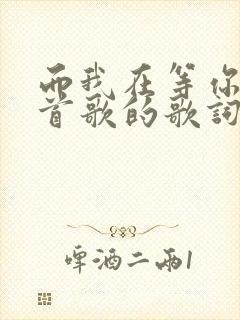 而我在等你
首歌的歌詞
啤酒二兩1